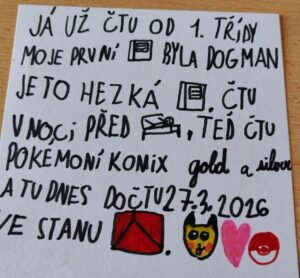 JÁ UŽ ČTU OD 1. TŘÍDY
MOJE PRVNÍ BYLA DOGMAN
JE TO HEZKÁ . ČTU
V NOCI PŘED , TEĎ ČTU
POKÉMONÍ KOMIX gold a silver
A TU DNES DOČTU 27.3. 2026
VE STANU .